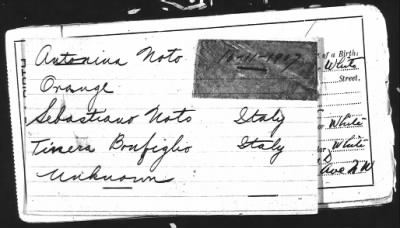 Antonina Noto
10-11-1907
of a Birth:
White
Street.
Orange
Sebastiano Noto Italy
White
Tinera Bonfiglio Italy
White
Unknown
Ave N W